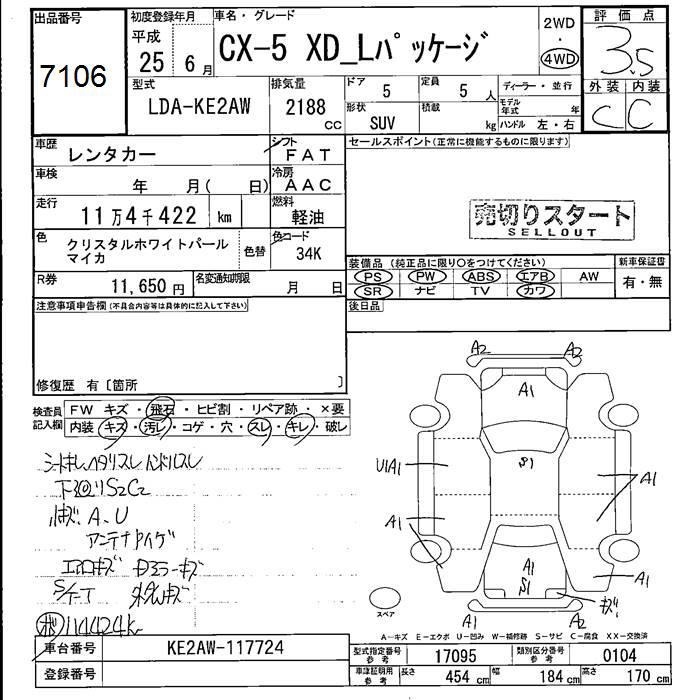 出品番号
7106
初度登録年月
平成
25 6月
車名・グレード
CX-5 XD_Lパッケージ
2WD
・
4WD
評価点
3.5
外装 内装
C C
型式
LDA-KE2AW
排気量
2188 cc
ドア
5
定員
5 人
形状
SUV
積載
kg
ディーラー・並行
モデル年式 年
ハンドル 左・右
車歴
レンタカー
シフト
FAT
車検
年 月( 日)
冷房
AAC
走行
11万4千422 km
燃料
軽油
色
クリスタルホワイトパール
マイカ
色替
色コード
34K
R券
11,650 円
名変通知期限
月 日
セールスポイント(正常に機能するものに限ります)
売切りスタート
SELLOUT
装備品(純正品に限り○をつけてください)
PS PW ABS エアB AW
SR ナビ TV カワ
新車保証書
有・無
注意事項申告欄(不具合内容等は具体的に記入して下さい)
後日品
修復歴 有〔箇所 〕
検査員
記入欄
FW キズ・飛石・ヒビ割・リペア跡・×要
内装 キズ・汚レ・コゲ・穴・スレ・キレ・破レ
シートキレヘタリスレ ハンドルスレ
下回リS2C2
A、U
アンテナ
エアロキズ
S/T
114424k
A2 A2
A1
S1
U1A1
A1
A1
A1
S1
A1
A1
A2
キズ
スペア
A-キズ E-エクボ U-凹み W-補修跡 S-サビ C-腐食 XX-交換済
車台番号
KE2AW-117724
登録番号
型式指定番号
参考
17095
類別区分番号
参考
0104
車庫証明用
参考
長さ
454 cm
幅
184 cm
高さ
170 cm